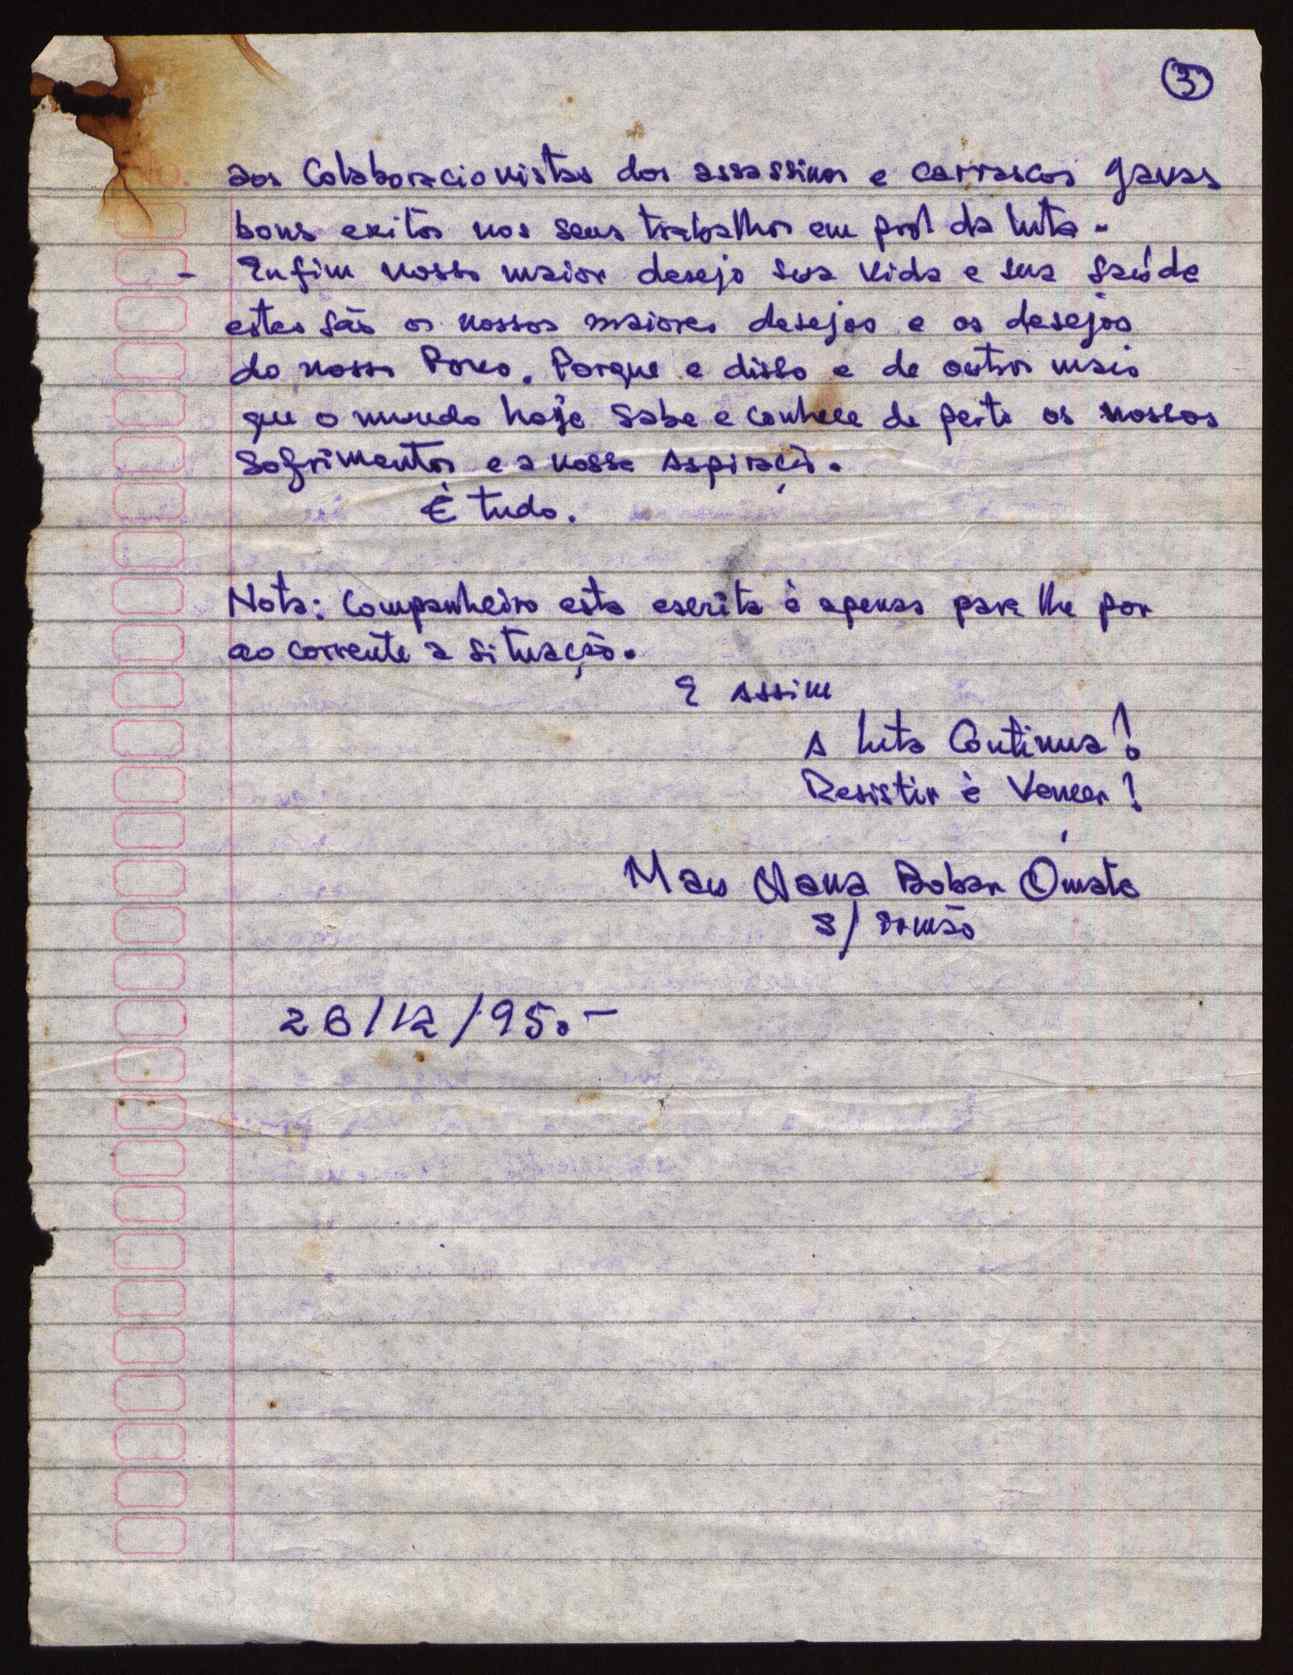 3
aos Colaboracionistas dos assassinos e carrascos Javas
bons exitos nos seus trabalhos em prol da luta.
- Enfim nosso maior desejo sua vida e sua saúde
estes são os nossos maiores desejos e os desejos
do nosso Povo. Porque e disso e de outros mais
que o mundo hoje sabe e conhece de perto os nossos
sofrimentos e a nossa Aspiração.
È tudo.
Nota: Companheiro esta escrita è apenas para lhe por
ao corrente a situação.
E Assim
A luta Continua!
Resistir è Vencer!
Mau Nana Bobar
S/ Irmão
26/12/95.-